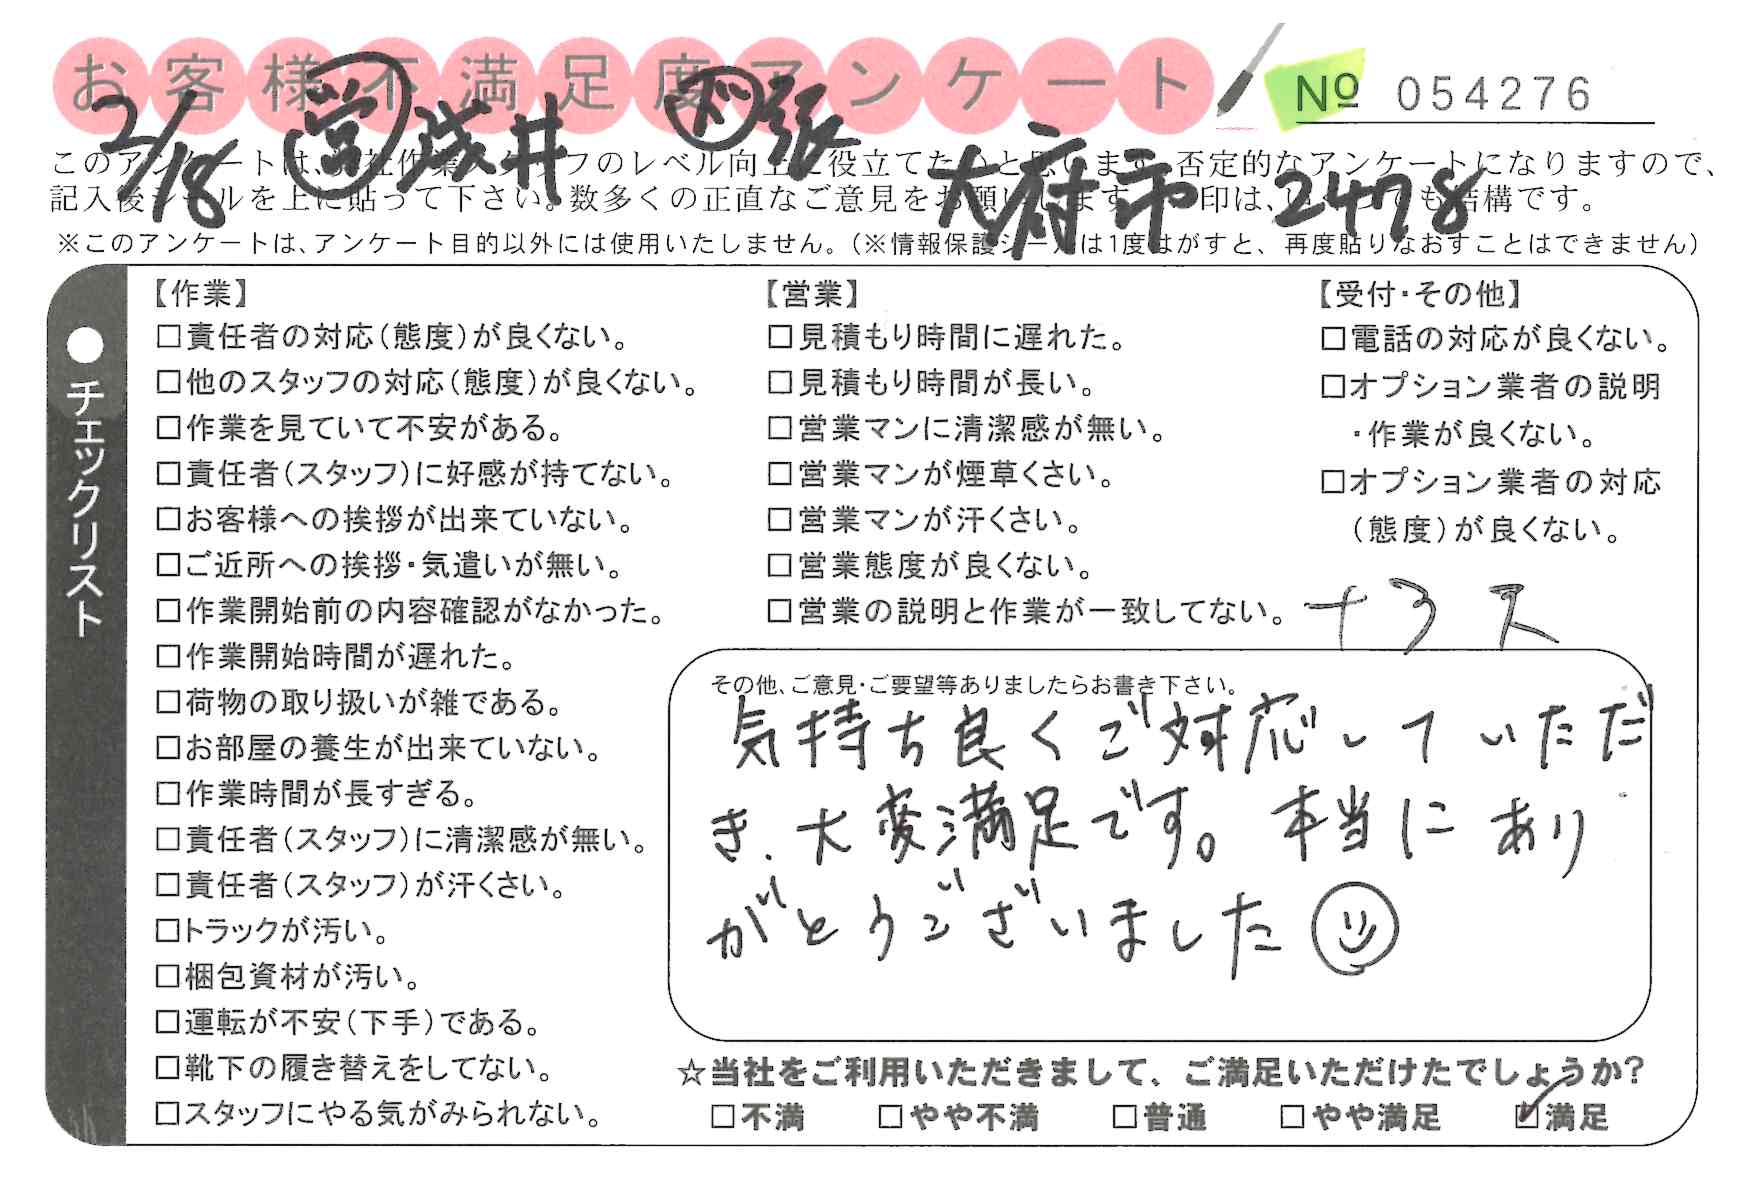 お客様不満足度アンケート
№ 054276
2/18 営 浅井 下 張 大府市 2478
このアンケートは、社作業スタッフのレベル向上に役立てたいと思います。否定的なアンケートになりますので、
記入後シールを上に貼って下さい。数多くの正直なご意見をお願いします。印は、いくつでも結構です。
※このアンケートは、アンケート目的以外には使用いたしません。(※情報保護シールは1度はがすと、再度貼りなおすことはできません)
●チェックリスト
【作業】
□責任者の対応(態度)が良くない。
□他のスタッフの対応(態度)が良くない。
□作業を見ていて不安がある。
□責任者(スタッフ)に好感が持てない。
□お客様への挨拶が出来ていない。
□ご近所への挨拶・気遣いが無い。
□作業開始前の内容確認がなかった。
□作業開始時間が遅れた。
□荷物の取り扱いが雑である。
□お部屋の養生が出来ていない。
□作業時間が長すぎる。
□責任者(スタッフ)に清潔感が無い。
□責任者(スタッフ)が汗くさい。
□トラックが汚い。
□梱包資材が汚い。
□運転が不安(下手)である。
□靴下の履き替えをしてない。
□スタッフにやる気がみられない。
【営業】
□見積もり時間に遅れた。
□見積もり時間が長い。
□営業マンに清潔感が無い。
□営業マンが煙草くさい。
□営業マンが汗くさい。
□営業態度が良くない。
□営業の説明と作業が一致してない。
【受付・その他】
□電話の対応が良くない。
□オプション業者の説明
・作業が良くない。
□オプション業者の対応
(態度)が良くない。
その他、ご意見・ご要望等ありましたらお書き下さい。
気持ち良くご対応していただ
き、大変満足です。本当にあり
がとうございました
☆当社をご利用いただきまして、ご満足いただけたでしょうか?
□不満 □やや不満 □普通 □やや満足 ☑満足